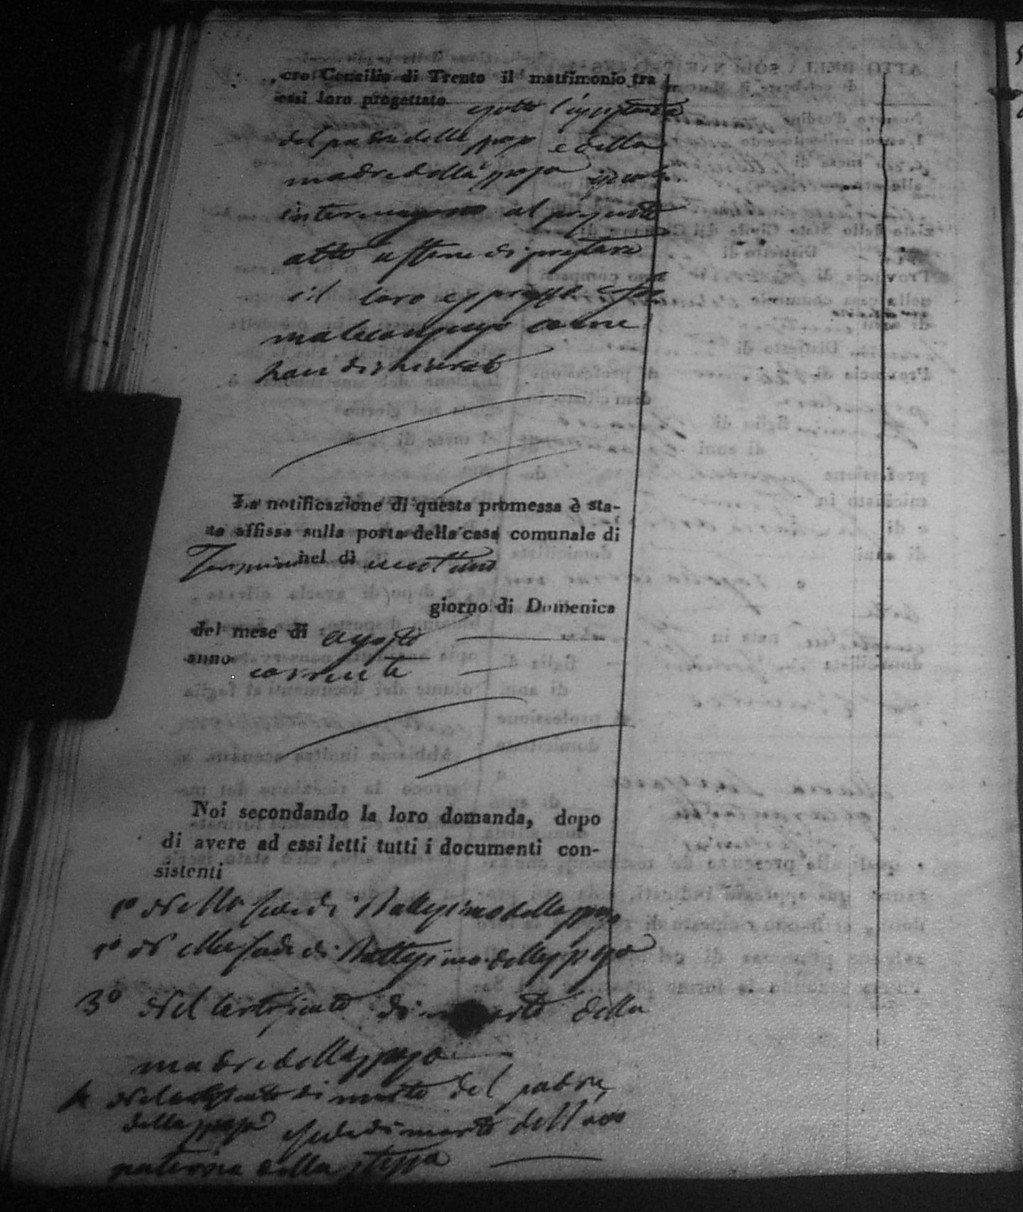 cro Concilio di Trento il matrimonio tra
essi loro progettato sotto l'
del padre dello sposo e della
madre della sposa i quali
intervengono al presente
atto affine di prestare
il loro espresso e for
male consenso come
han dichiarato
La notificazione di questa promessa è sta-
ta affissa sulla porta della casa comunale di
nel di ventuno
giorno di Domenica
del mese di agosto
anno corrente
Noi secondando la loro domanda, dopo
di avere ad essi letti tutti i documenti con-
sistenti
1° della fede di Battesimo dello sposo
della fede di Battesimo della sposa
3° del certificato di morte della
madre dello sposo
del certificato di morte del padre
della sposa e fede di morte dell'avo
paterno della stessa